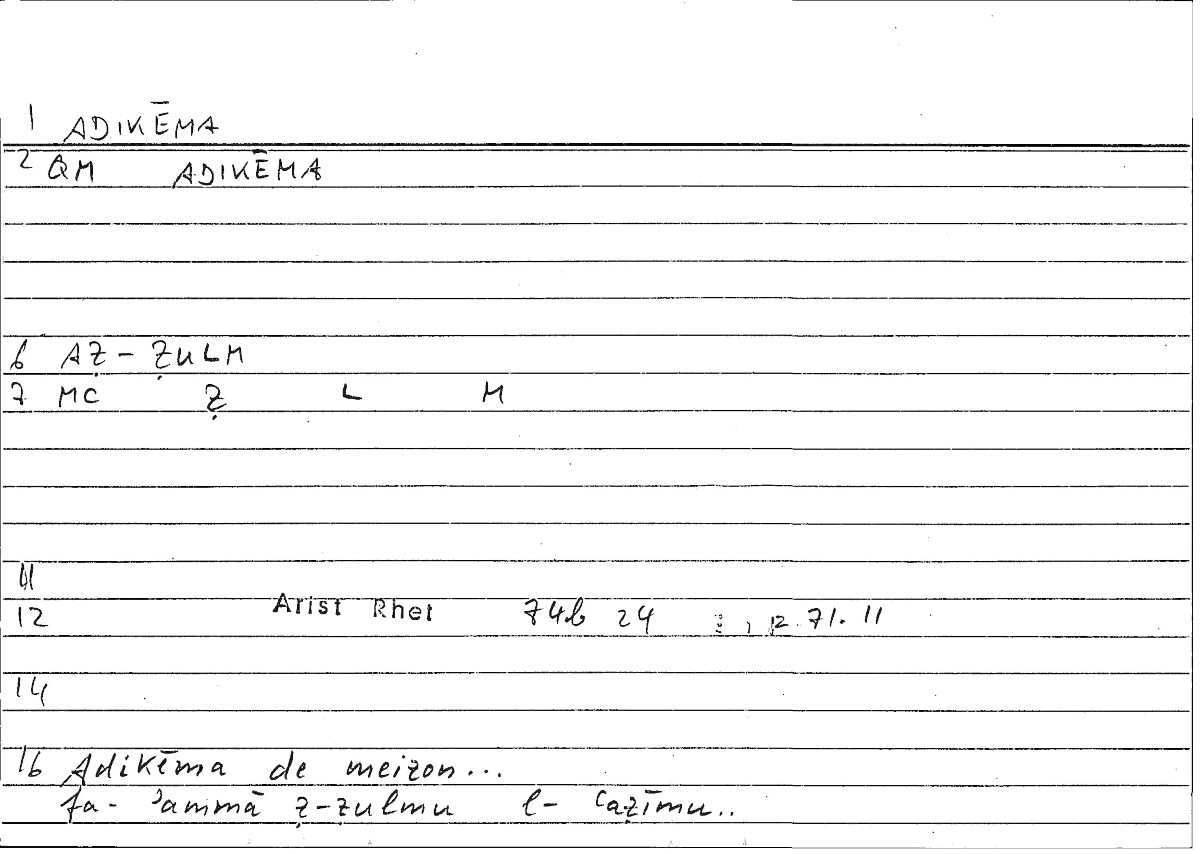 1 ADIKĒMA
2 QM ADIKĒMA
6 AẒ-ẒULM
7 MC Ẓ L M
11
12 Arist Rhet 74b 24 : , 12 71. 11
14
16 Adikēma de meizon...
fa- ʾammā ẓ-ẓulmu l- ʿaẓīmu..